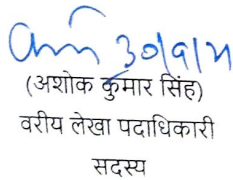 30/9/14
(अशोक कुमार सिंह)
वरीय लेखा पदाधिकारी
सदस्य